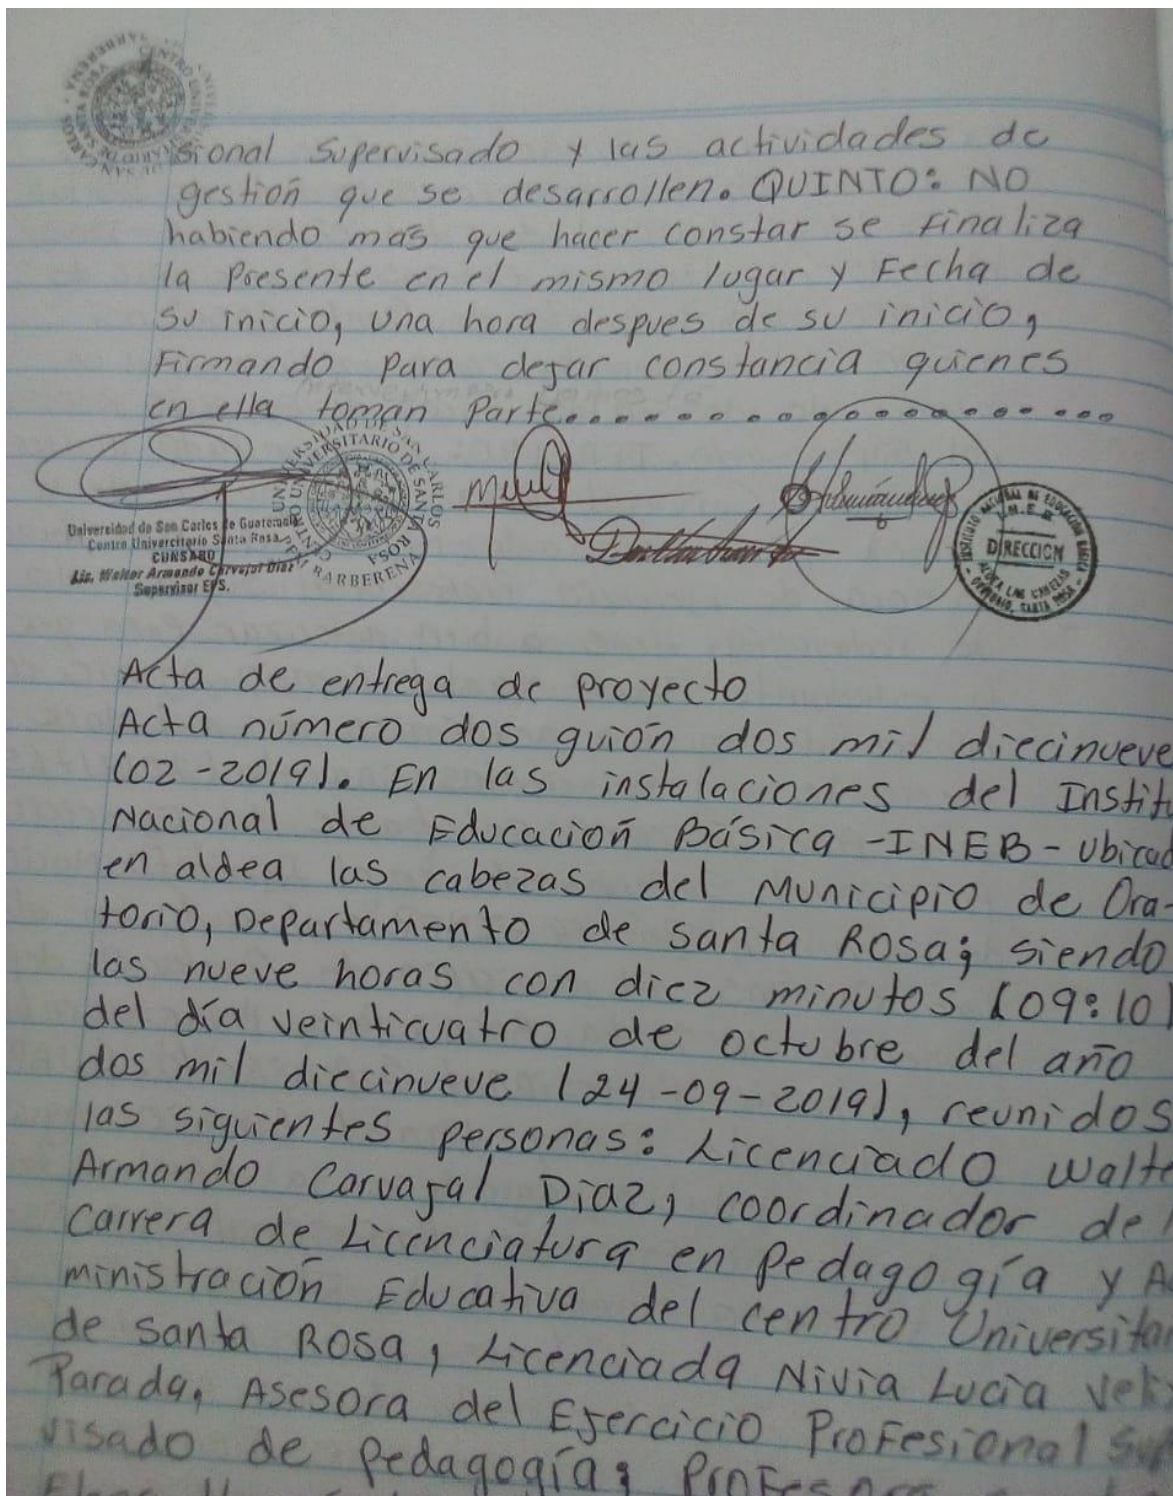 sional Supervisado y las actividades de
gestión que se desarrollen. QUINTO: NO
habiendo más que hacer constar se finaliza
la Presente en el mismo lugar y Fecha de
su inicio, una hora despues de su inicio,
Firmando para dejar constancia quienes
en ella toman Parte....................
Universidad de San Carlos de Guatemala
Centro Univercitario Santa Rosa
CUNSARO
Lic. Walter Armando Carvajal Díaz
Supervisor EPS.
UNIVERSIDAD DE SAN CARLOS
CENTRO UNIVERSITARIO DE SANTA ROSA
BARBERENA
INSTITUTO NACIONAL DE EDUCACION BASICA
I.N.E.B.
DIRECCION
ALDEA LAS CABEZAS
ORATORIO, SANTA ROSA
Acta de entrega de proyecto
Acta número dos guión dos mil diecinueve
(02-2019). En las instalaciones del Institu
Nacional de Educación Básica -INEB- Ubicad
en aldea las cabezas del Municipio de Ora-
torio, Departamento de Santa Rosa; siendo
las nueve horas con diez minutos (09:10)
del día veinticuatro de octubre del año
dos mil diecinueve (24-09-2019), reunidos
las siguientes personas: Licenciado Walte
Armando Carvajal Díaz, coordinador de l
carrera de Licenciatura en Pedagogía y A
ministración Educativa del centro Universitar
de Santa Rosa, Licenciada Nivia Lucia Veli
Parada, Asesora del Ejercicio Profesional Sup
visado de Pedagogía; Profesora